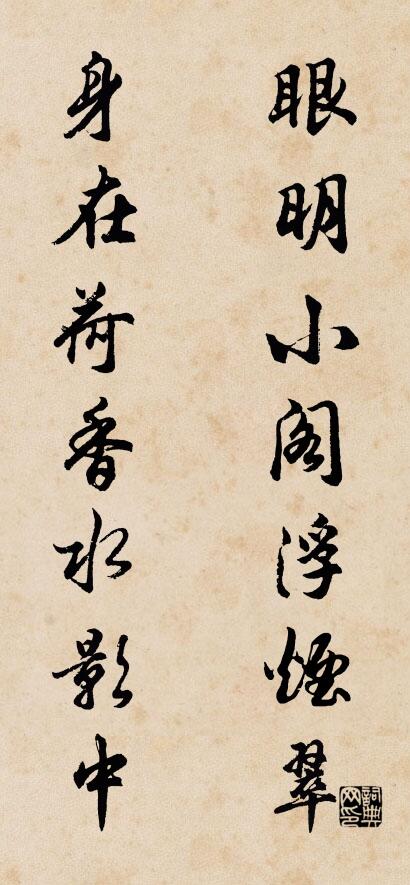 眼明小阁浮煙翠
身在荷香水影中
詞典网印